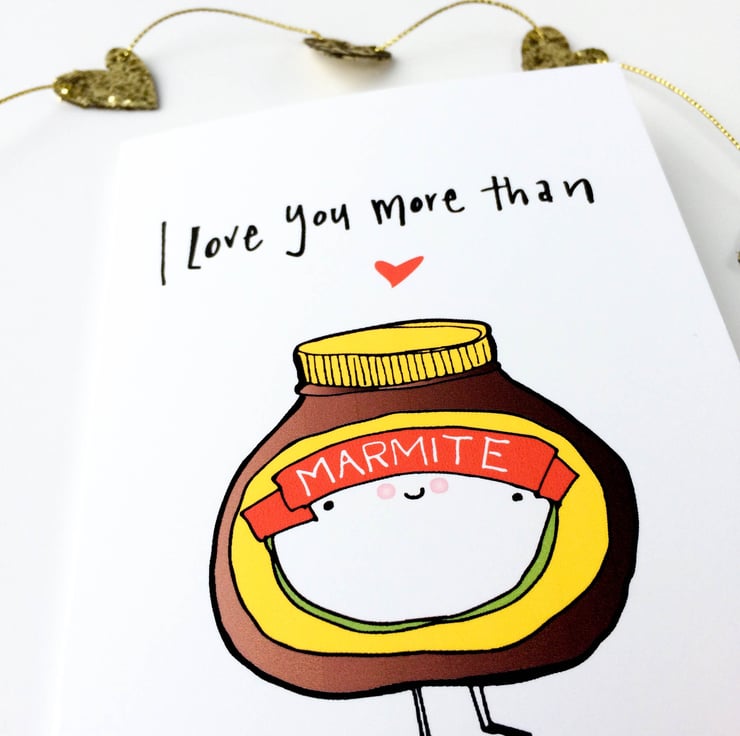 I Love you more than
MARMITE